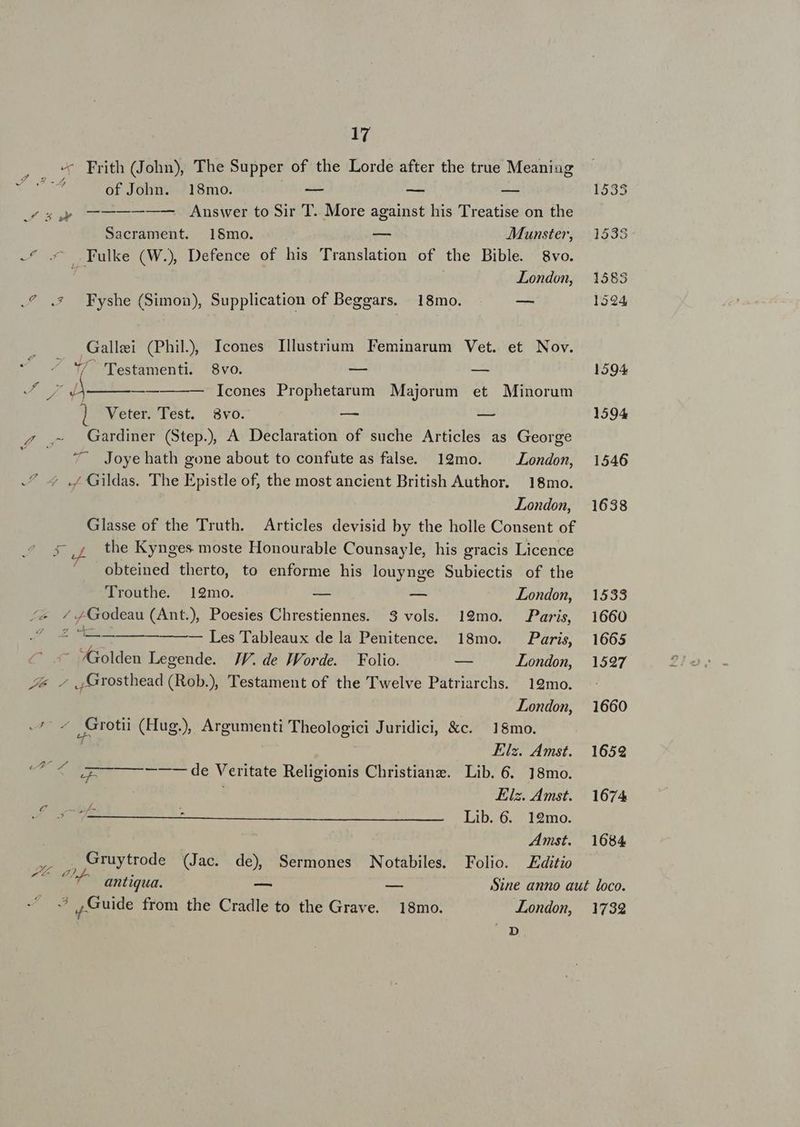 17
Frith (John), The Supper of the Lorde after the true Meaning
of John. 18mo. — — — 1533
—————— Answer to Sir T. More against his Treatise on the
Sacrament. 18mo. — Munster, 1533
Fulke (W.), Defence of his Translation of the Bible. 8vo.
London, 1583
Fyshe (Simon), Supplication of Beggars. 18mo. — 1524
Gallæi (Phil.), Icones Illustrium Feminarum Vet. et Nov.
Testamenti. 8vo. — — 1594
—————— Icones Prophetarum Majorum et Minorum
Veter. Test. 8vo. — — 1594
Gardiner (Step.), A Declaration of suche Articles as George
Joye hath gone about to confute as false. 12mo. London, 1546
Gildas. The Epistle of, the most ancient British Author. 18mo.
London, 1638
Glasse of the Truth. Articles devisid by the holle Consent of
the Kynges moste Honourable Counsayle, his gracis Licence
obteined therto, to enforme his louynge Subiectis of the
Trouthe. 12mo. — — London, 1533
Godeau (Ant.), Poesies Chrestiennes. 3 vols. 12mo. Paris, 1660
—————— Les Tableaux de la Penitence. 18mo. Paris, 1665
Golden Legende. W. de Worde. Folio. — London, 1527
Grosthead (Rob.), Testament of the Twelve Patriarchs. 12mo.
London, 1660
Grotii (Hug.), Argumenti Theologici Juridici, &c. 18mo.
Elz. Amst. 1652
—————— de Veritate Religionis Christianæ. Lib. 6. 18mo.
Elz. Amst. 1674
—————— Lib. 6. 12mo.
Amst. 1684
Gruytrode (Jac. de), Sermones Notabiles. Folio. Editio
antiqua. — — Sine anno aut loco.
Guide from the Cradle to the Grave. 18mo. London, 1732
D